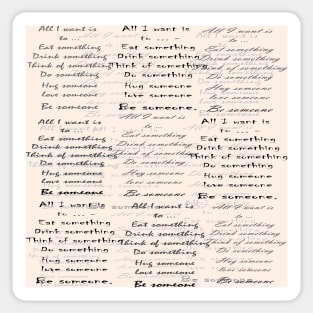 All I want is
to ...
Eat something
Drink something
Think of something
Do something
Hug someone
love someone
Be someone
All I want is
to ...
Eat something
Drink something
Think of something
Do something
Hug someone
love someone.
Be someone.
All I want is
to ...
Eat something
Drink something
Think of something
Do something
Hug someone
love someone
Be someone
All I want is
to ...
Eat something
Drink something
Think of something
Do something
Hug someone
love someone
Be someone
All I want is
to ...
Eat something
Drink something
Think of something
Do something
Hug someone
love someone
Be someone
All I want is
to ...
Eat something
Drink something
Think of something
Do something
Hug someone
love someone.
Be someone.
All I want is
to ...
Eat something
Drink something
Think of something
Do something
Hug someone
love someone.
Be someone.
All I want is
to ...
Eat something
Drink something
Think of something
Do something
Hug someone
love someone
Be someone
All I want is
to ...
Eat something
Drink something
Think of something
Do something
Hug someone
love someone
Be someone